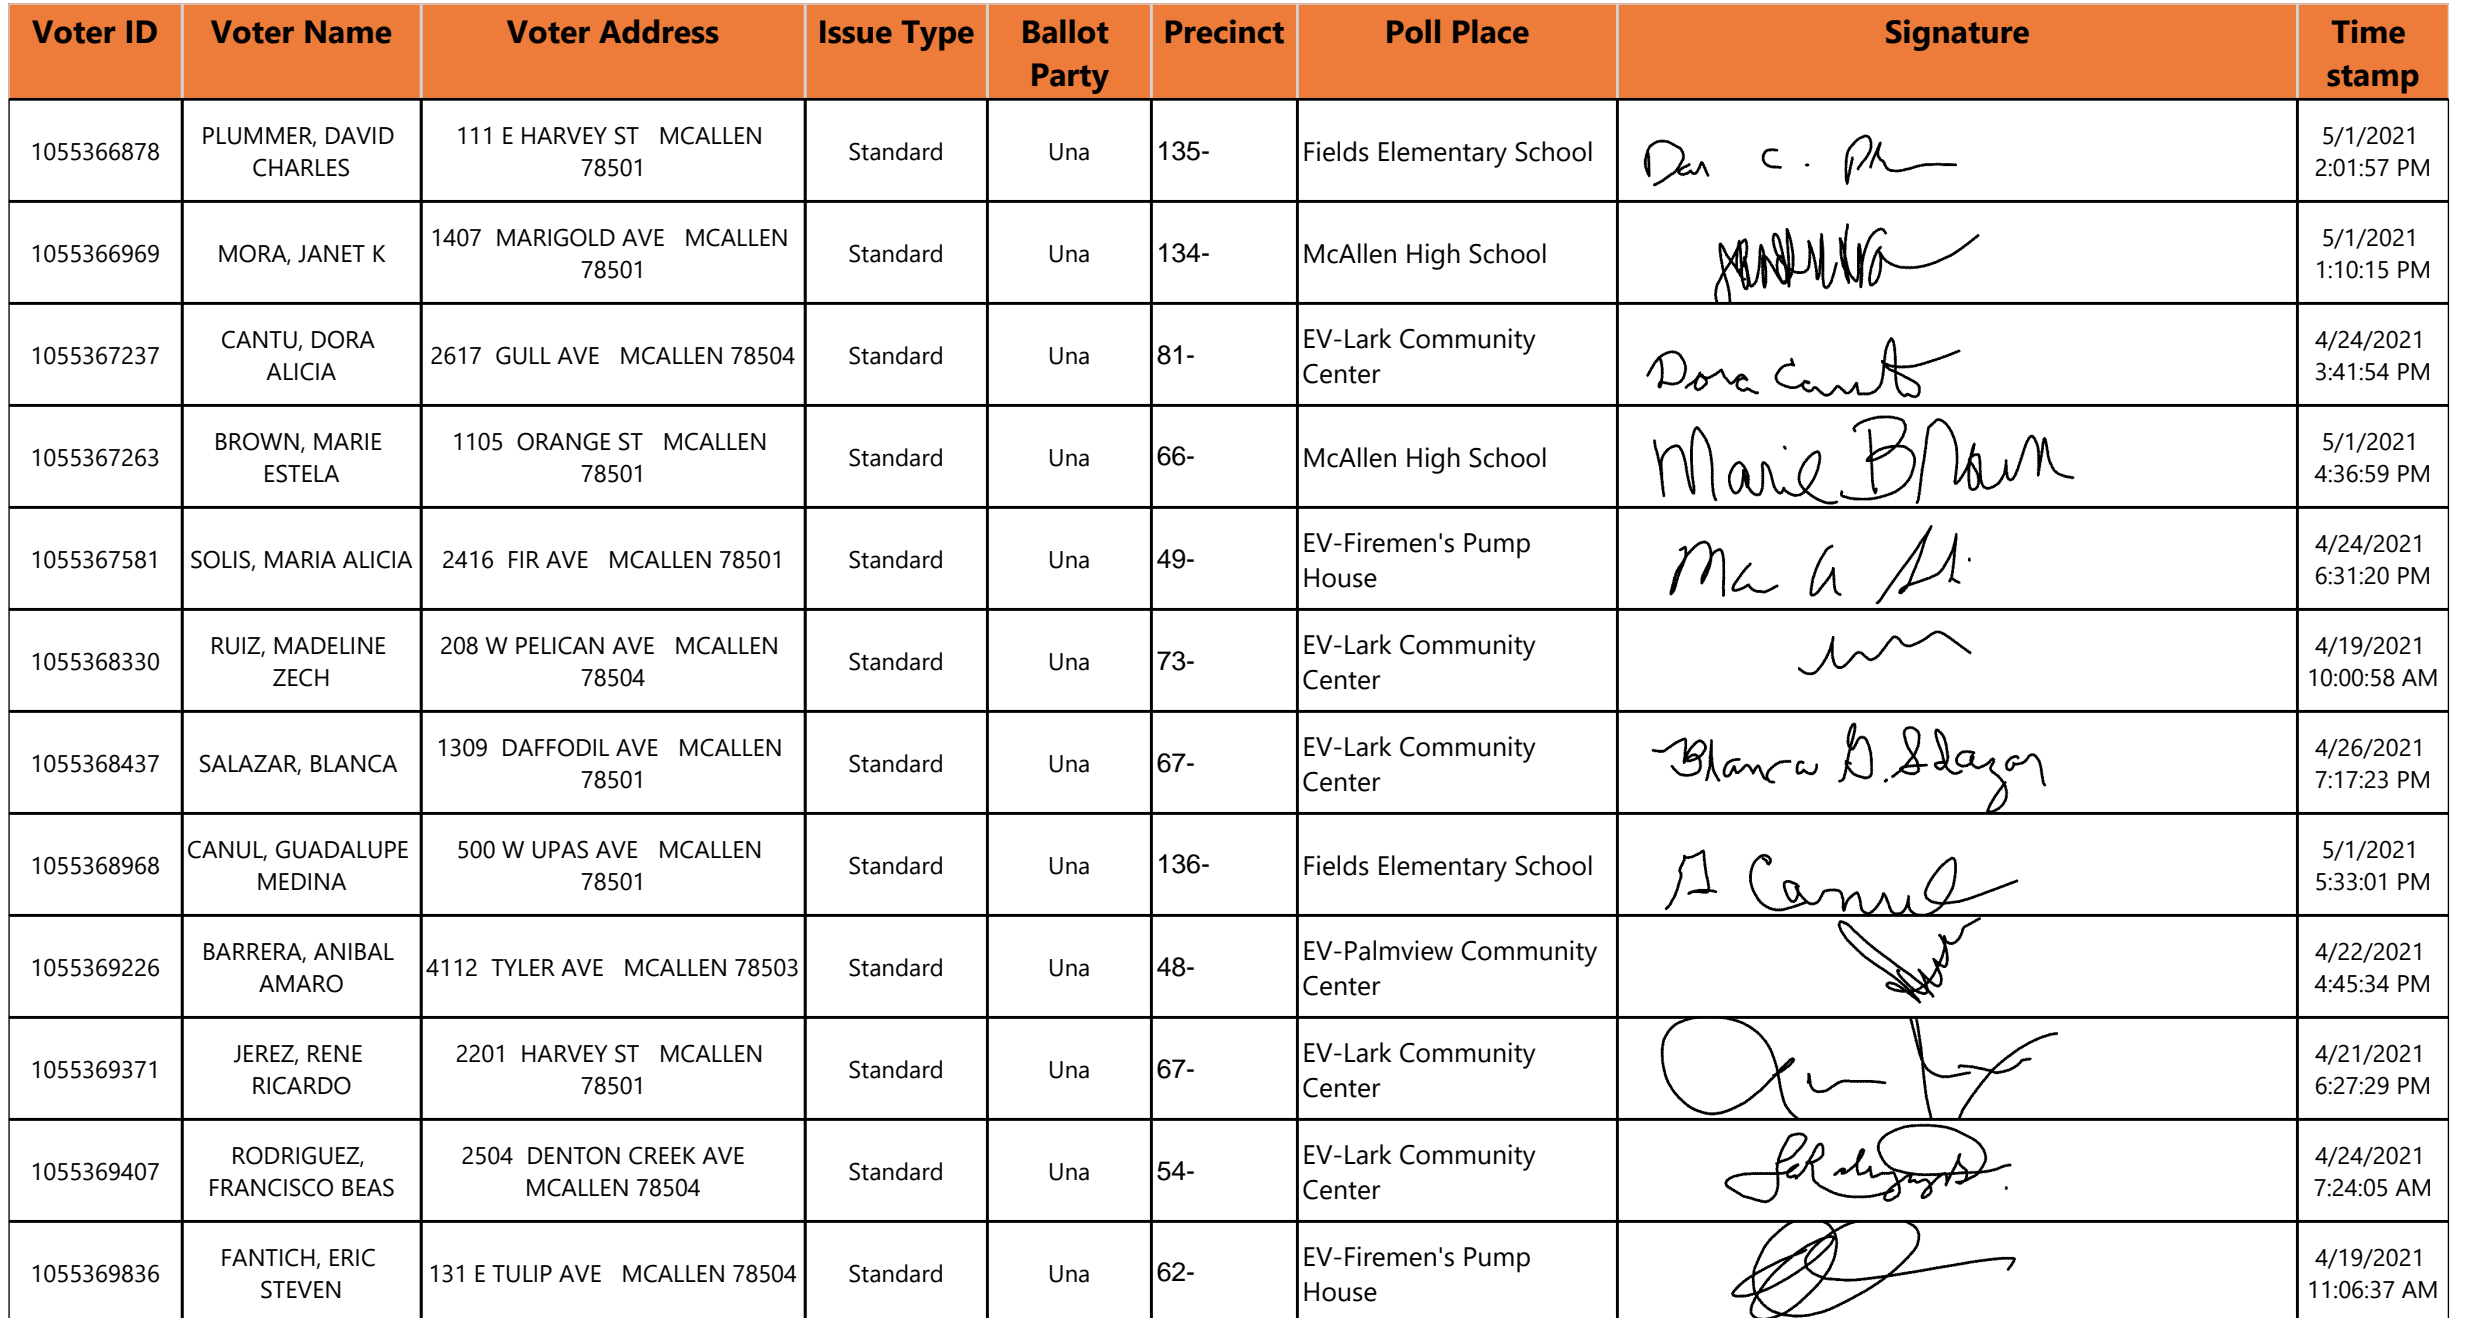 Voter ID Voter Name Voter Address Issue Type Ballot Party Precinct Poll Place Signature Time stamp
1055366878 PLUMMER, DAVID CHARLES 111 E HARVEY ST MCALLEN 78501 Standard Una 135- Fields Elementary School C. 5/1/2021 2:01:57 PM
1055366969 MORA, JANET K 1407 MARIGOLD AVE MCALLEN 78501 Standard Una 134- McAllen High School 5/1/2021 1:10:15 PM
1055367237 CANTU, DORA ALICIA 2617 GULL AVE MCALLEN 78504 Standard Una 81- EV-Lark Community Center Dora Cantu 4/24/2021 3:41:54 PM
1055367263 BROWN, MARIE ESTELA 1105 ORANGE ST MCALLEN 78501 Standard Una 66- McAllen High School Marie Brown 5/1/2021 4:36:59 PM
1055367581 SOLIS, MARIA ALICIA 2416 FIR AVE MCALLEN 78501 Standard Una 49- EV-Firemen's Pump House Ma A 4/24/2021 6:31:20 PM
1055368330 RUIZ, MADELINE ZECH 208 W PELICAN AVE MCALLEN 78504 Standard Una 73- EV-Lark Community Center 4/19/2021 10:00:58 AM
1055368437 SALAZAR, BLANCA 1309 DAFFODIL AVE MCALLEN 78501 Standard Una 67- EV-Lark Community Center Blanca G. Salazar 4/26/2021 7:17:23 PM
1055368968 CANUL, GUADALUPE MEDINA 500 W UPAS AVE MCALLEN 78501 Standard Una 136- Fields Elementary School G Canul 5/1/2021 5:33:01 PM
1055369226 BARRERA, ANIBAL AMARO 4112 TYLER AVE MCALLEN 78503 Standard Una 48- EV-Palmview Community Center 4/22/2021 4:45:34 PM
1055369371 JEREZ, RENE RICARDO 2201 HARVEY ST MCALLEN 78501 Standard Una 67- EV-Lark Community Center 4/21/2021 6:27:29 PM
1055369407 RODRIGUEZ, FRANCISCO BEAS 2504 DENTON CREEK AVE MCALLEN 78504 Standard Una 54- EV-Lark Community Center 4/24/2021 7:24:05 AM
1055369836 FANTICH, ERIC STEVEN 131 E TULIP AVE MCALLEN 78504 Standard Una 62- EV-Firemen's Pump House 4/19/2021 11:06:37 AM